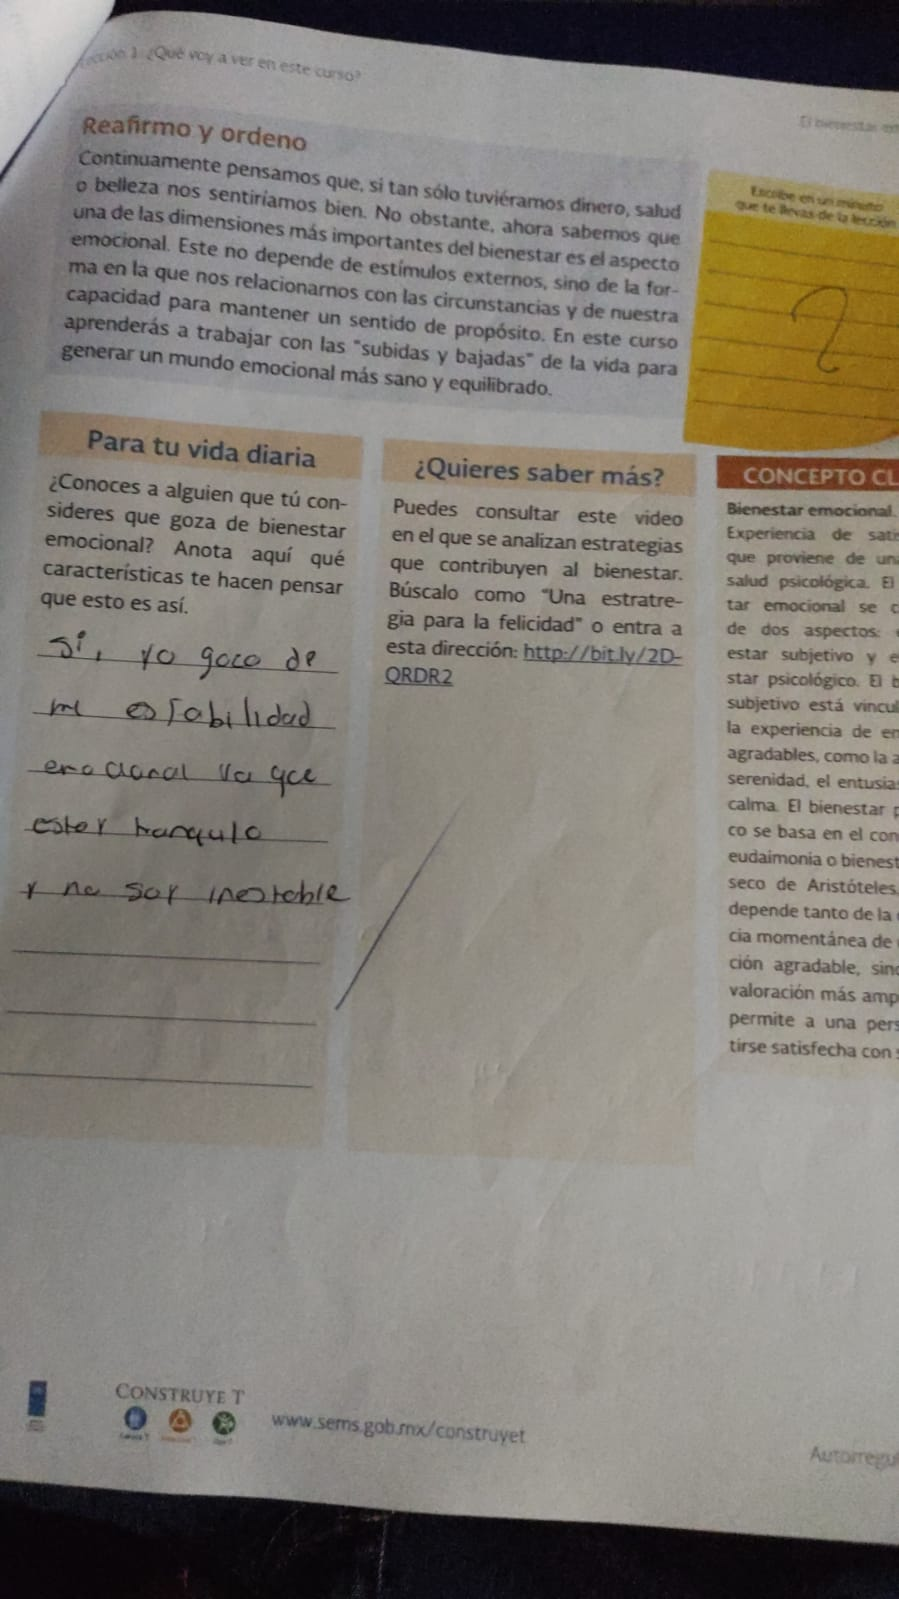 Lección 1. ¿Qué voy a ver en este curso?
El bienestar em
Reafirmo y ordeno
Continuamente pensamos que, si tan sólo tuviéramos dinero, salud
o belleza nos sentiríamos bien. No obstante, ahora sabemos que
una de las dimensiones más importantes del bienestar es el aspecto
emocional. Este no depende de estímulos externos, sino de la for-
ma en la que nos relacionarnos con las circunstancias y de nuestra
capacidad para mantener un sentido de propósito. En este curso
aprenderás a trabajar con las "subidas y bajadas" de la vida para
generar un mundo emocional más sano y equilibrado.
Escribe en un minuto
que te llevas de la lección
Para tu vida diaria
¿Conoces a alguien que tú con-
sideres que goza de bienestar
emocional? Anota aquí qué
características te hacen pensar
que esto es así.
Si, yo goco de
mi estabilidad
emocional ya que
ester tranquilo
y no soy inestable
¿Quieres saber más?
Puedes consultar este video
en el que se analizan estrategias
que contribuyen al bienestar.
Búscalo como "Una estratre-
gia para la felicidad" o entra a
esta dirección: http://bit.ly/2D-
QRDR2
CONCEPTO CL
Bienestar emocional.
Experiencia de satis
que proviene de una
salud psicológica. El
tar emocional se c
de dos aspectos:
estar subjetivo y e
star psicológico. El b
subjetivo está vincul
la experiencia de em
agradables, como la a
serenidad, el entusias
calma. El bienestar p
co se basa en el con
eudaimonia o bienest
seco de Aristóteles,
depende tanto de la
cia momentánea de
ción agradable, sino
valoración más amp
permite a una pers
tirse satisfecha con s
CONSTRUYE T
www.sems.gob.mx/construyet
Autorregul